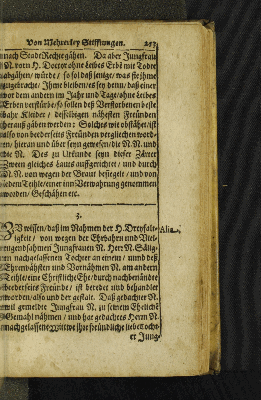 Von Mehrerley Stifftungen. 253
nach StadtRechte gåhen. Da aber Jungfrau
N. vorn H. Doctor ohne Leibes Erbe mit Todte
abgåhen/ würde/ so sol daß jenige/ was sie ihme
zugebracht/ Ihme bleiben/ es sey denn/ daß einer
vor dem andern im Jahr und Tage/ ohne Leibes
Erben verstürbe/ so sollen deß Verstorbenen beste
Kleider/ desselbigen nåhesten Freünden
heraus gåben werden: Solches wie obståhet/ ist
also von beederseits Freünden verglichen word-
en/ hierau und über seyn gewesen/ die N. N. und
die N. Des zu Uhrkunde seyn dieser Zårter
Zween gleiches Lauts außgerichtet/ und durch
N. N. von wegen der Braut besiegelt/ und von
iedem Teihle/ einer inn Verwahrung genommen
worden/ Geschåhen etc.
3.
Zu wissen/ daß im Nahmen der H. Dreyfalt- Alia.
igkeit/ von wegen der Ehrbahrn und Viel-
tugendsahmen Jungfrauen N. Herr N. Sålig-
en nachgelassenen Tochter an einem/ unnd deß
Ehrenwåhsten und Vornåhmen N. am andern
Teihle/ eine Christliche Ehe/ durch nachbenånte
beederseits Freünde/ ist beredet und behandler
worden/ also und der gestalt. Daß gedachter N.
wil gemeldte Jungfrau N. zu seinem Ehelichē
Gemahl nåhmen/ und hat gedachtes Herrn N.
nachgelassene Wittwe ihre freündliche liebe Toch-
er Jung-